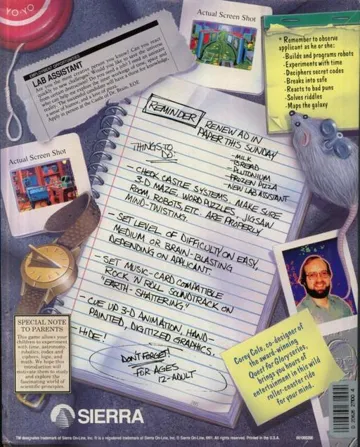 YO-YO
Actual Screen Shot
LAB ASSISTANT
Actual Screen Shot
* Remember to observe
applicant as he or she:
-Builds and programs robots
-Experiments with time
-Deciphers secret codes
-Breaks into safe
-Reacts to bad puns
-Solves riddles
-Maps the galaxy
REMINDER
RENEW AD IN
PAPER THIS SUNDAY
THINGS TO
DO:
-MILK
-BREAD
-PLUTONIUM
-FROZEN PIZZA
-NEW LAB ASSISTANT
- CHECK CASTLE SYSTEMS. MAKE SURE
3-D MAZE, WORD PUZZLES, JIGSAW
ROOM, ROBOTS, ETC. ARE PROPERLY
MIND-TWISTING
- SET LEVEL OF DIFFICULTY ON EASY,
MEDIUM OR BRAIN-BLASTING
DEPENDING ON APPLICANT.
- SET MUSIC-CARD COMPATIBLE
ROCK 'N ROLL SOUNDTRACK ON
"EARTH-SHATTERING"
- CUE UP 3-D ANIMATION, HAND-
PAINTED, DIGITIZED GRAPHICS.
- HIDE!
DON'T FORGET!
FOR AGES
12-ADULT
Corey Cole, co-designer of
the award-winning
Quest for Glory series,
brings you hours of
entertainment in this wild
roller-coaster ride
for your mind.
SPECIAL NOTE
TO PARENTS
This game allows your
children to experiment
with time, astronomy,
robotics, codes and
ciphers, logic, and
math. We hope this
introduction will
motivate them to study
and explore the
fascinating world of
scientific principles.
SIERRA